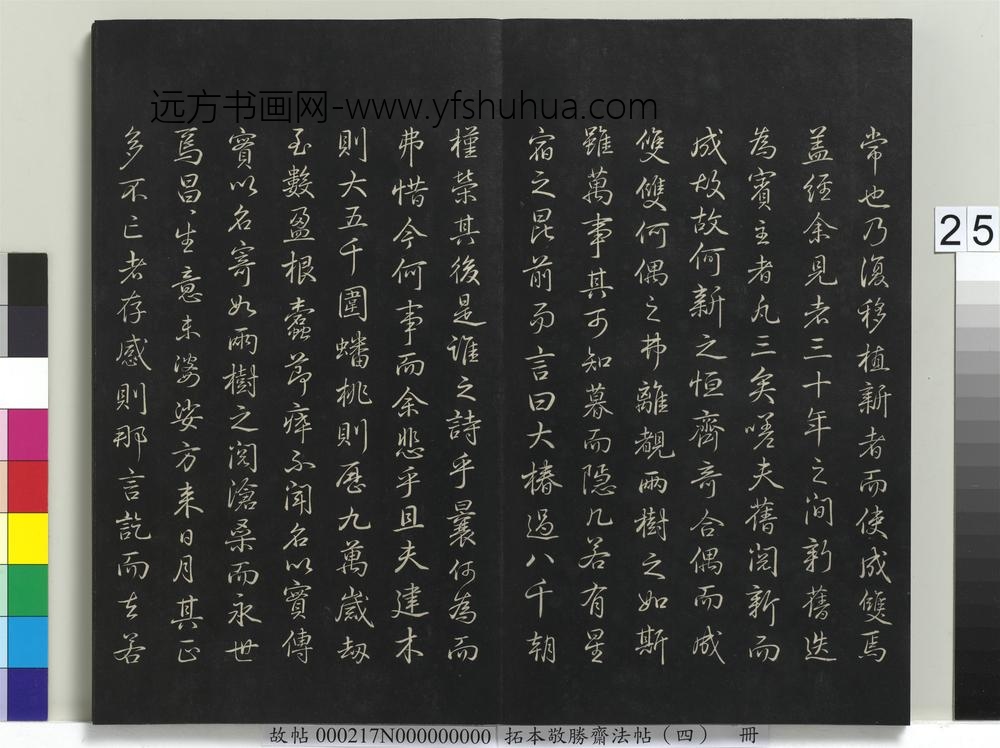 远方书画网-www.yfshuhua.com
常也乃復移植新者而使成雙焉
盖經余見者三十年之间新舊迭
為賓主者凡三矣嗟夫舊閱新而
成故故何新之恒齊奇合偶而成
雙雙何偶之弗離觀兩樹之如斯
雖萬事其可知暮而隐几若有星
宿之昆前而言曰大椿過八千朝
槿榮其後是誰之詩乎曩何為而
弗惜今何事而余悲乎且夫建木
則大五千圍蟠桃則歷九萬歲劫
至數盈根蠹節瘁不聞名以實傳
實以名寄如兩樹之閱滄桑而永世
焉昌昌生意未婆娑方来日月其正
多不亡者存感則那言訖而去若
25
故帖 000217N000000000 拓本敬勝齋法帖（四） 冊